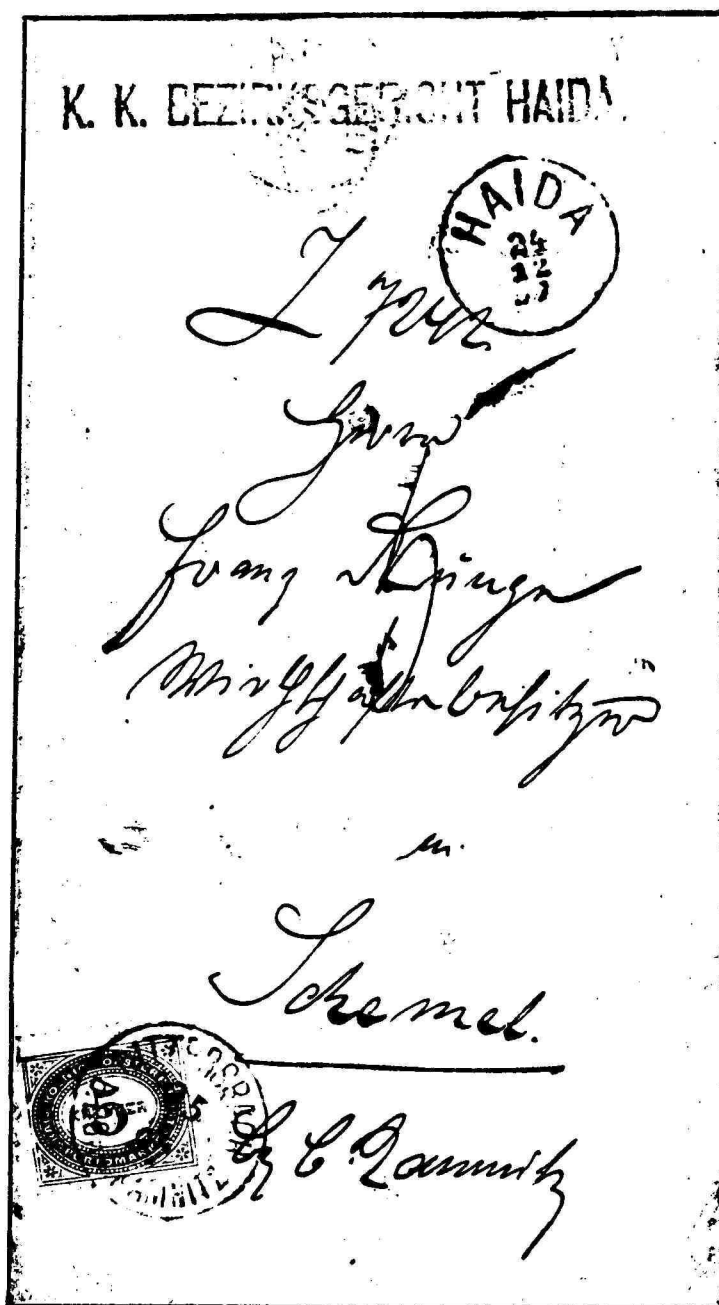 K. K. BEZIRKSGERICHT HAIDA.
HAIDA
24
12
Z 7242
Herrn
Franz Münzer
Wirthschaftsbesitzer
in
Schemel.
Bz B. Kamnitz